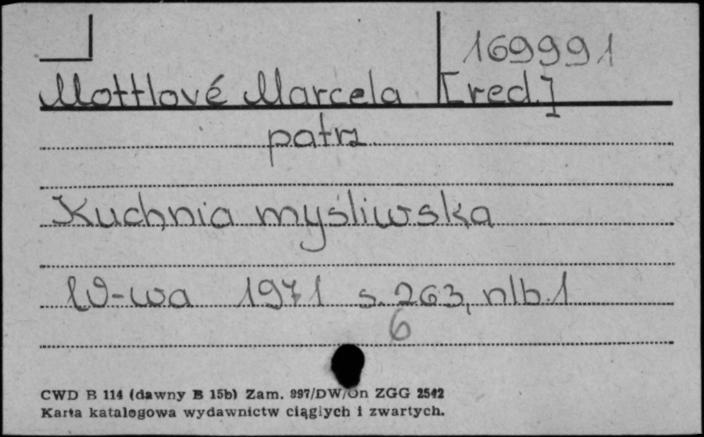 169991
Mottlové Marcela [red.]
patrz
Kuchnia myśliwska
W-wa 1971 s. 263, nlb. 1
6
CWD B 114 (dawny B 15b) Zam. 997/DW/On ZGG 2542
Karta katalogowa wydawnictw ciągłych i zwartych.